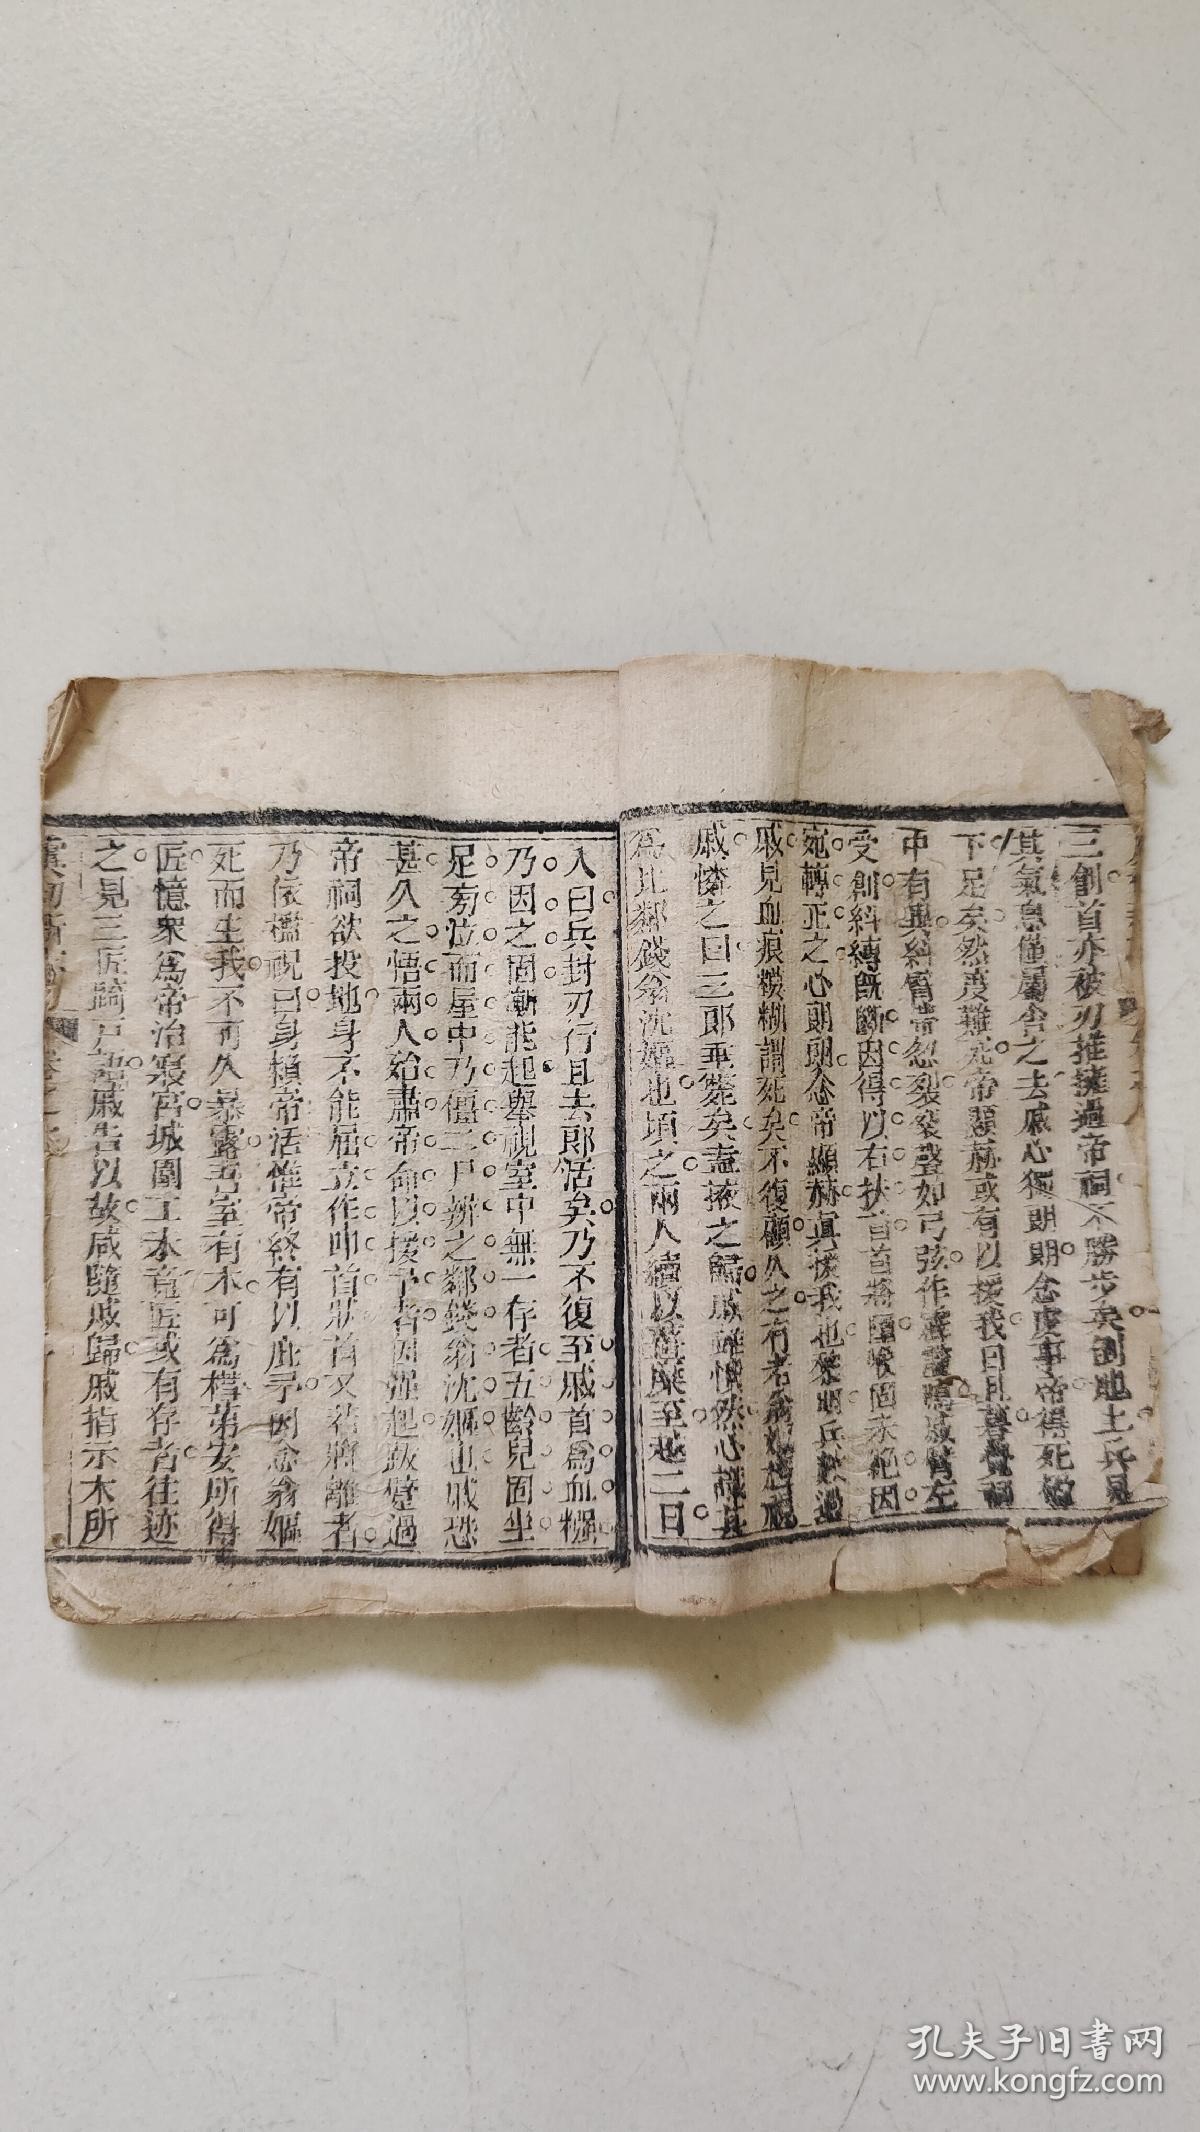 三創首亦被刃推擁過帝祠不勝步矣倒地上兵見
其氣息僅屬舍之去戚心獨朗朗念虔事帝得死
下足矣然度難死帝顯赫或有以援我日且暮覺祠
中有異糾臂帶忽裂裂聲如弓弦作霹靂鳴戚臂左
受創糾縛既斷因得以右扶首首將墮喉固未絕因
宛轉正之心朗朗念帝顯赫真援我也黎明兵數過
戚見血痕模糊謂死矣不復顧久之有老翁嫗過視
戚憐之曰三郎垂斃矣盍掖之歸戚雖憒然心識其
為比鄰錢翁沈嫗也頃之兩人續以薑糜至越二日
入曰兵封刃行且去郎活矣乃不復至戚首為血糊
乃因之固漸能起舉視室中無一存者五齡兒固坐
足旁泣而屋中乃僵二尸辨之鄰錢翁沈嫗也戚恐
甚久之悟兩人始肅帝命以援予者因彊起跋躄過
帝祠欲投地身不能屈立作叩首狀首又若將離者
乃依檻祝曰身賴帝活惟帝終有以庇予因念翁嫗
死而生我不可久暴露吾室有木可為槥第安所得
匠憶眾為帝治寢宮城圍工未竟匠或有存者往迹
之見三匠踦戶語戚告以故咸隨戚歸戚指示木所
虞初新志 卷之
孔夫子旧书网
www.kongfz.com